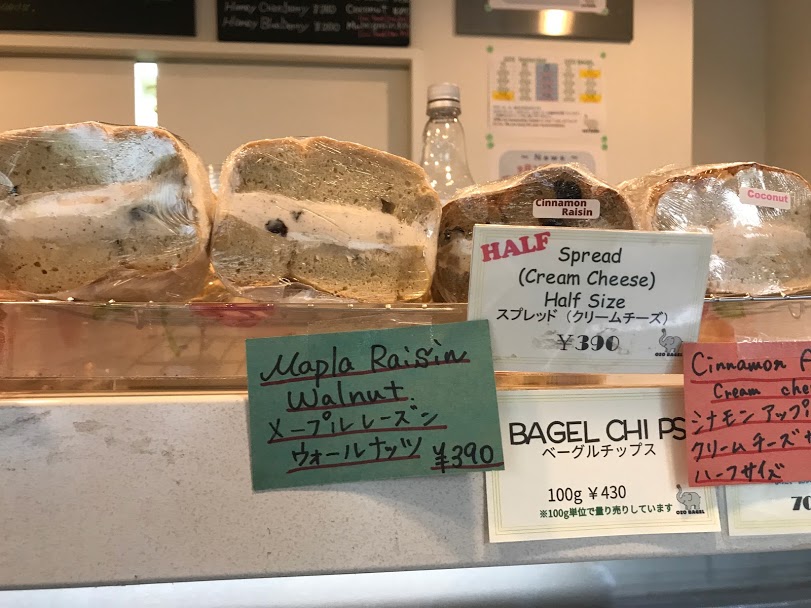 Honey Cranberry ¥380
Honey Blueberry
Coconut
News
Cinnamon
Raisin
Coconut
HALF
Spread
(Cream Cheese)
Half Size
スプレッド（クリームチーズ）
¥390
OZO BAGEL
Mapla Raisin
Walnut.
メープルレーズン
ウォールナッツ ¥390
BAGEL CHIPS
ベーグルチップス
100g ¥430
※100g単位で量り売りしています
OZO BAGEL
Cinnamon
Cream
シナモンアップ
クリームチーズ
ハーフサイズ
70